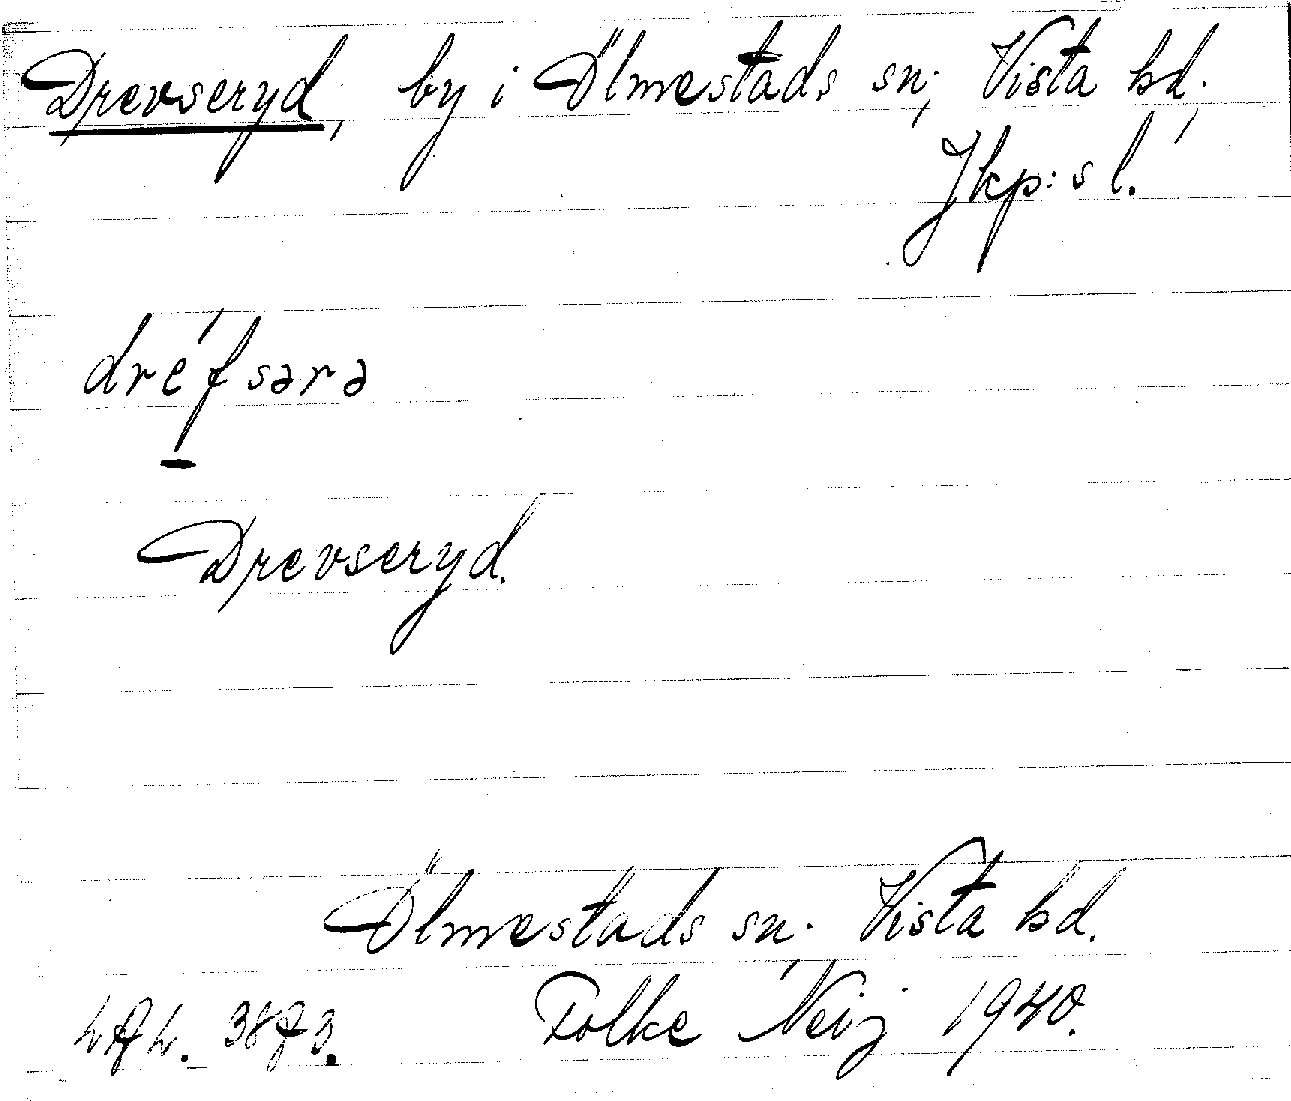 Drevseryd, by i Ölmestads sn, Vista hd,
Jkp:s l.
dréfsərə
Drevseryd.
Ölmestads sn. Vista hd.
Folke Neij 1940.